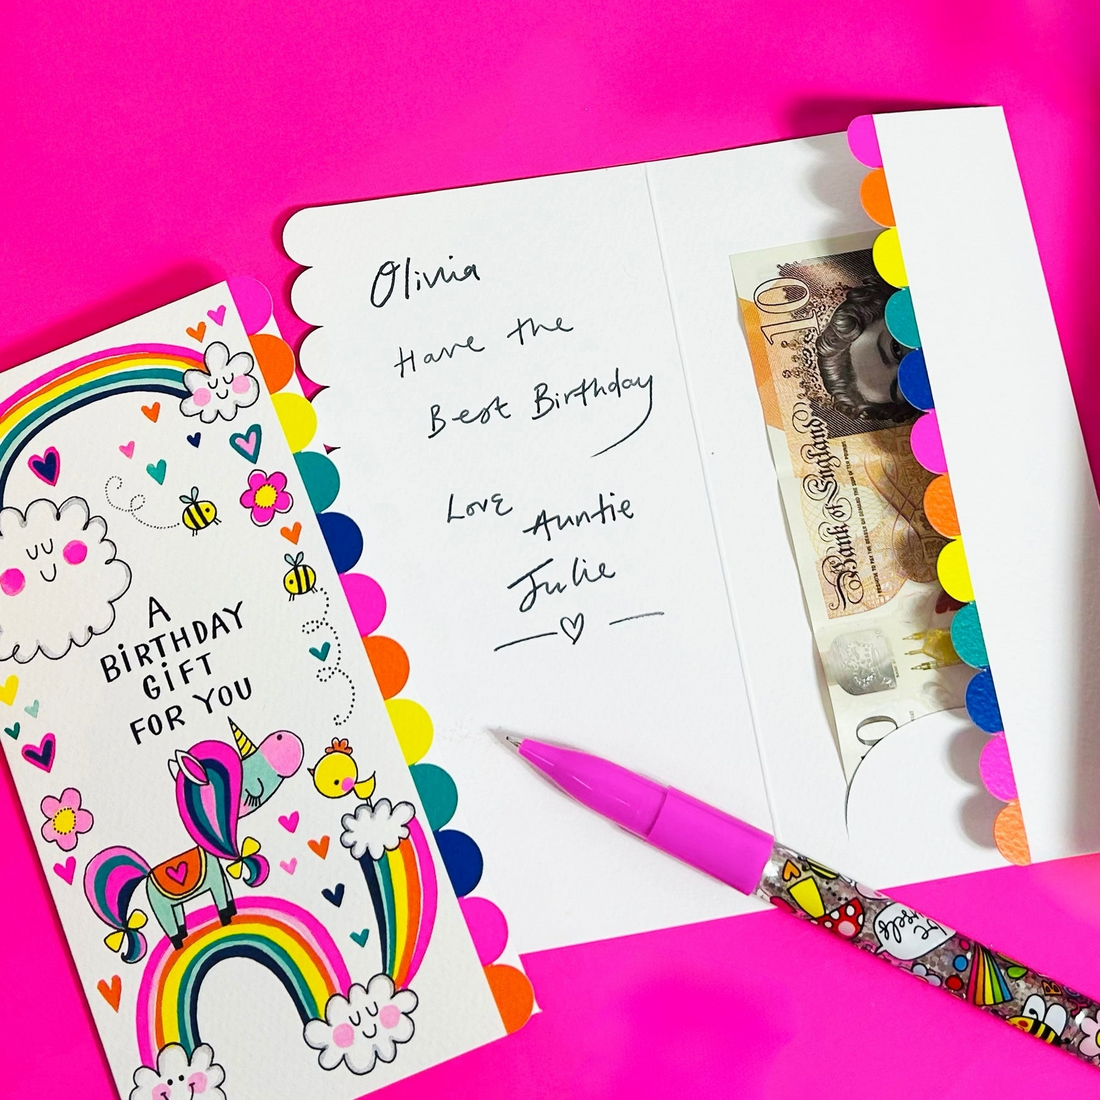 A
BiRTHDAY
GiFT
FOR YOU
Olivia
Have the
Best Birthday
Love Auntie
Julie
10
Bank of England